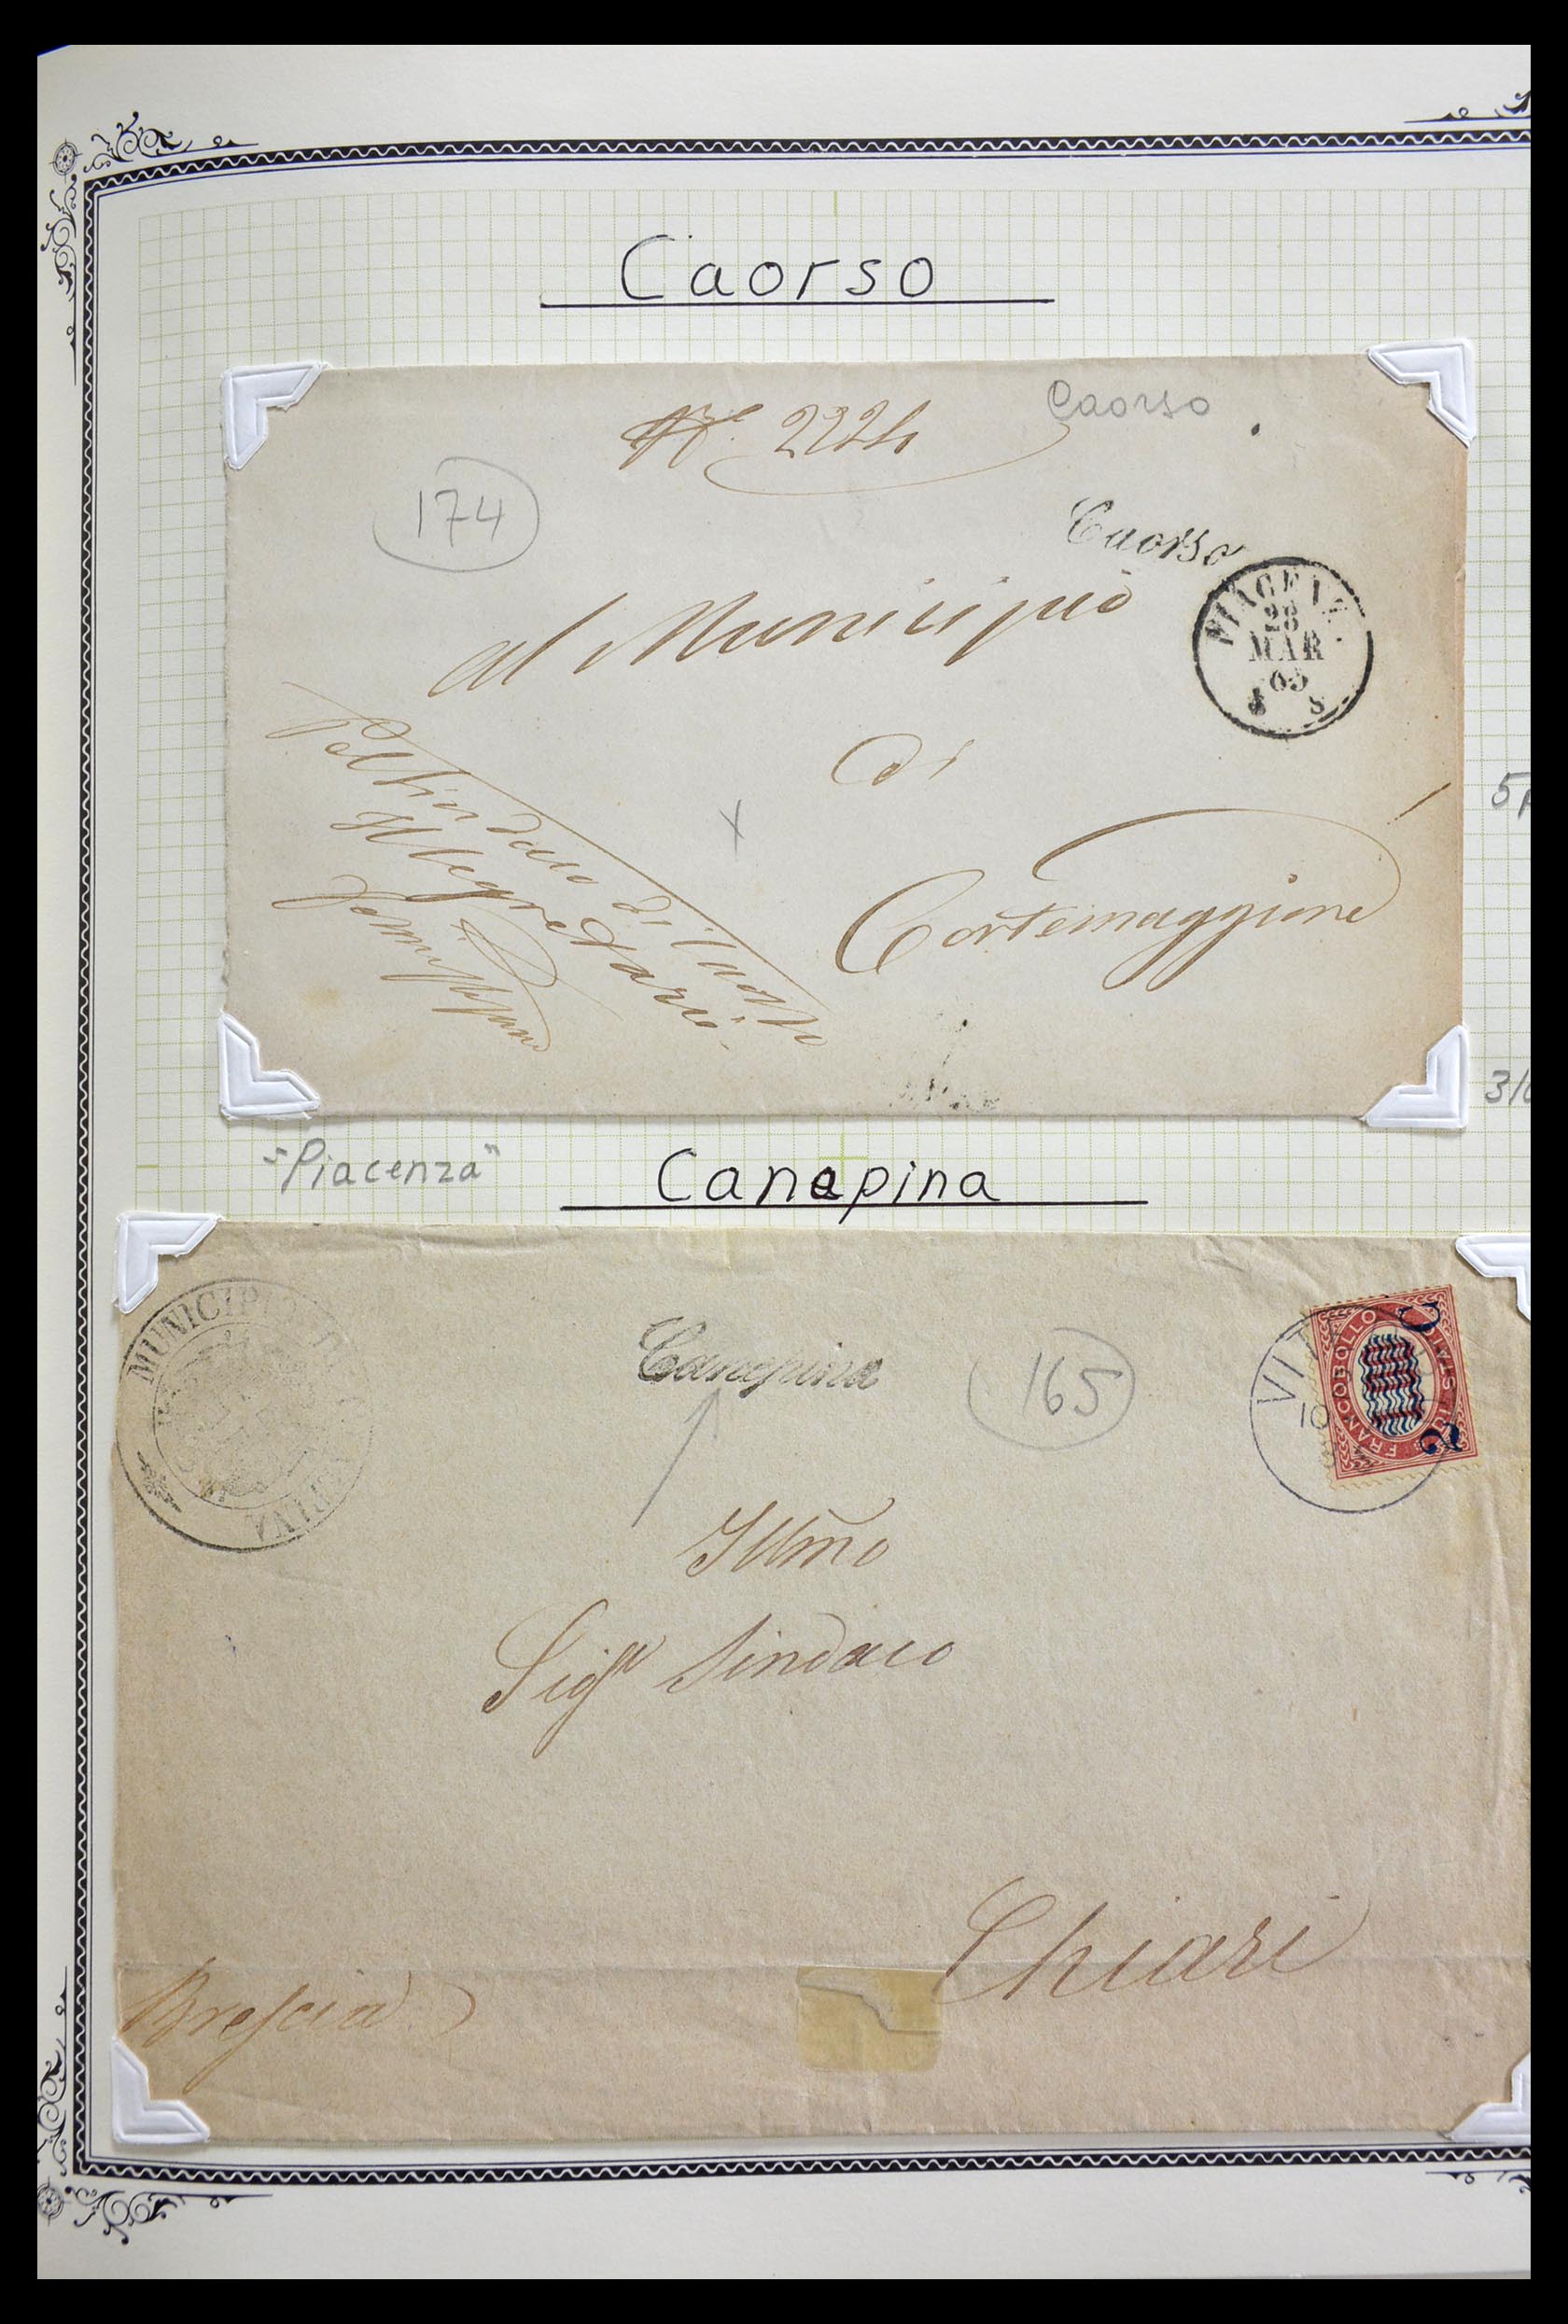 Caorso
Caorso
N°. 2224
174
Caorso
PIACENZ.
28
MAR
65
8 S
al Municipio
di
Cortemaggiore
Pel Sindaco di Caorso
Il Segretario
"Piacenza"
Canepina
MUNICIPIO DI
PINA
Canepina
165
VIT
10
FRANCOBOLLO
2 C
Illmo
Sigr Sindaco
Chiari
Brescia